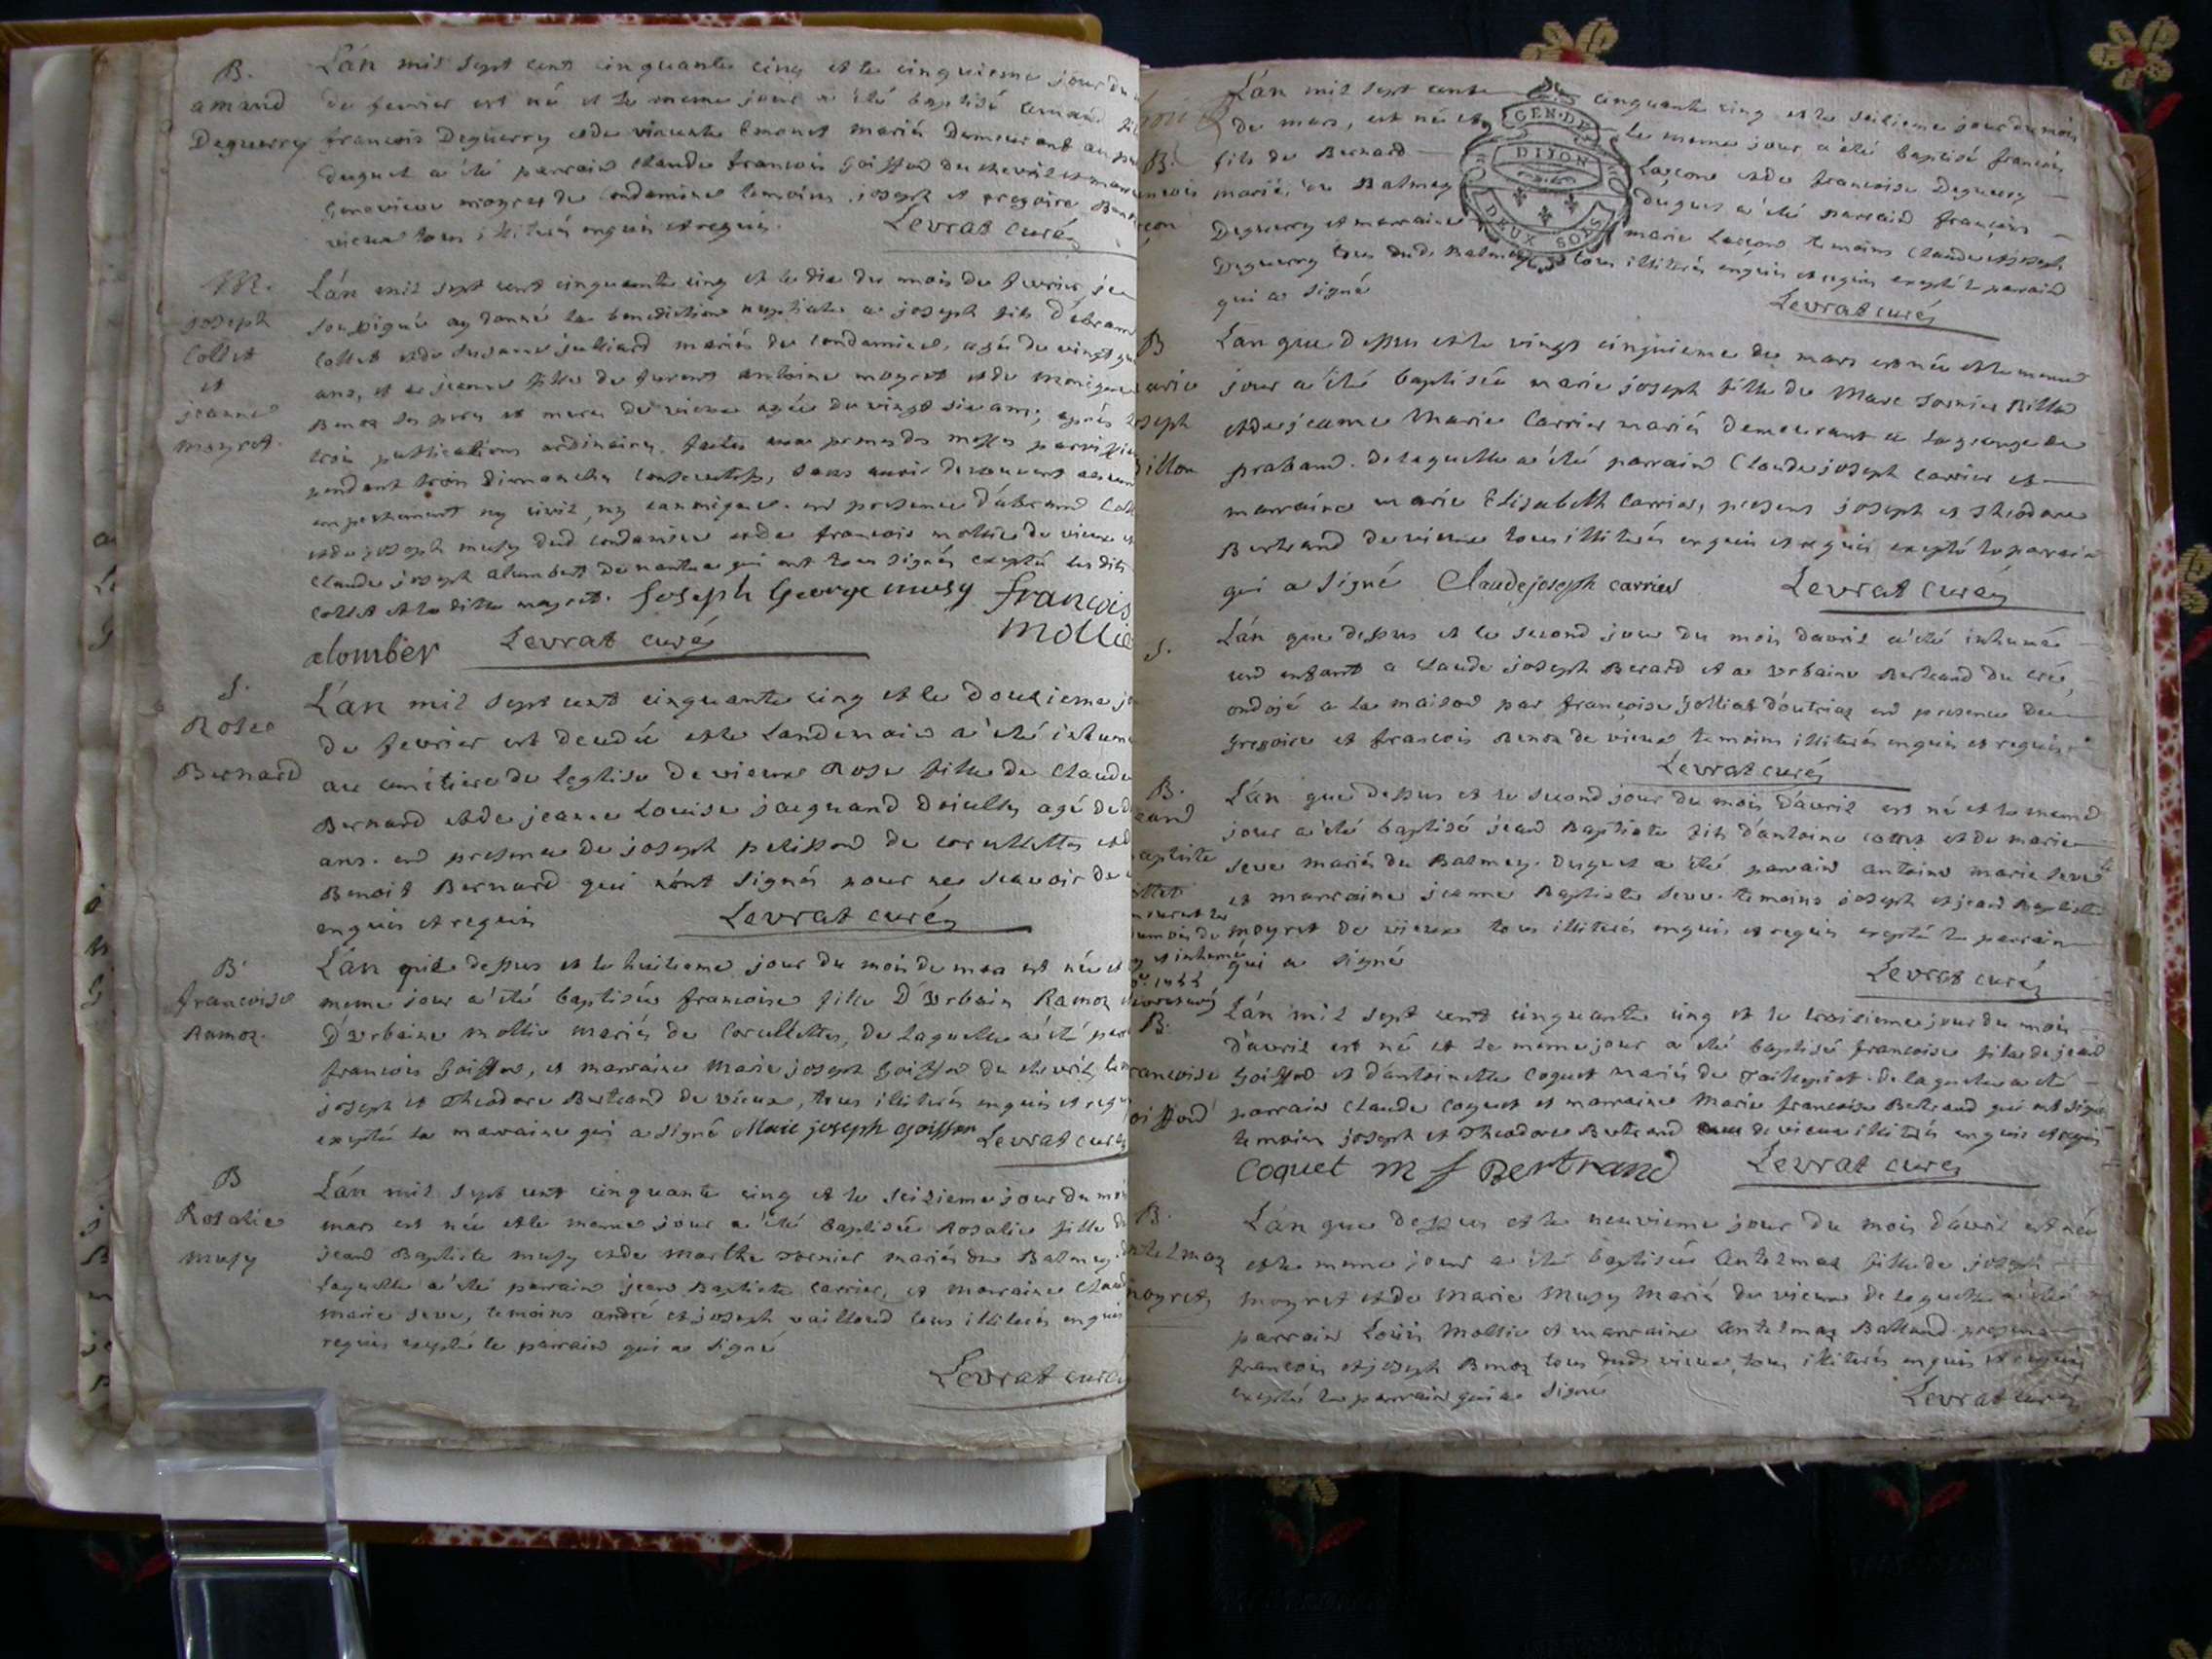 B.
amand
Deguerry
L'án mil sept cent cinquante cinq et le cinquieme jour du
de fevrier est né et le meme jour a été baptisé amand
francois Deguerry et de vincente Emonet mariés Demeurant au
duquel a été parrain claude francois Goiffon du chevril et
Genevieve moyret de Condamine temoins joseph et gregoire
vieux tous illitérés enquis et requis.
Levrat curé
M.
joseph
Collet
et
jeanne
moyret.
L'án mil sept cent cinquante cinq et le dix du mois de fevrier je
soussigné ay donné la benediction nuptiale a joseph fils d'abram
Collet et de susanne julliard mariés de Condamine, agé de vingt
ans, et a jeanne fille de furent antoine moyret et de monique
Benoz ses pere et mere de vieux agée de vingt six ans; après
trois publications ordinaires faites aux prones des messes
pendant trois dimanches consecutifs, sans avoir decouvert aucun
empechement ny civil, ny canonique. en presence d'abram
et de joseph musy dud condamine et de francois mollie de vieux et
claude joseph alombert de nantua qui ont tous signés excepté les dits
Collet et la ditte moyret. Joseph George musy françois
mollie
alomber Levrat curé
S.
Rose
Bernard
L'án mil sept cent cinquante cinq et le Douzieme
de fevrier est decedée et le landemain a été
au cimitiere de l'eglise de vieux Rose fille de Claude
Bernard et de jeanne Louise jacquand agé de
ans. en presence de joseph pelisson de corcelettes et
Benoit Bernard qui n'ont signés pour ne scavoir de
enquis et requis Levrat curé
B
francoise
Ramoz.
L'án que dessus et le huitieme jour du mois de mars est née et
meme jour a été baptisée francoise fille D'urbain Ramoz
D'urbaine mollie mariés de Corcelettes, de laquelle a été
francois Goiffon, et marraine Marie joseph Goiffon du chevril,
joseph et Theodore Bertrand de vieux, tous illitérés enquis et
excepté la marraine qui a signé Marie joseph goiffon Levrat curé
B
Rosalie
musy
L'án mil sept cent cinquante cinq et le seizieme jour du
mars est née et le meme jour a été baptisée Rosalie fille
jean Baptiste musy et de marthe sornier mariés du Balmey
laquelle a été parrain jean Baptiste carrier, et marraine
marie seve, temoins andré et joseph vailloud tous illitérés enquis
requis excepté le parrain qui a signé
Levrat curé
GEN. DE
DIJON
DEUX SOLS
B.
L'án mil sept cent cinquante cinq et le seizieme jour du mois
de mars, est né et le meme jour a été baptisé francois
fils de Bernard Lançon et de francoise Deguerry
mariés du Balmey duquel a été parrain françois
Deguerry et marraine marie Lançon temoins claude et joseph
Deguerry tous dud. Balmey tous illitérés enquis et requis excepté le parrain
qui a signé
Levrat curé
B
L'án que dessus et le vingt cinquieme de mars est née et le meme
jour a été baptisée marie joseph fille de Marc sornier Billon
et de jeanne Marie Carrier mariés demeurant a la grange de
praband. de laquelle a été parrain Claude joseph Carrier et
marraine marie Elisabeth Carrier, presens joseph et theodore
Bertrand de vieux tous illitérés enquis et requis excepté le parrain
qui a signé Claude joseph carrier Levrat curé
S.
L'án que dessus et le second jour du mois davril a été inhumé
und enfant a claude joseph Berard et a Urbaine Bertrand du
ondoyé a la maison par françoise jolliat d'outriaz en presence de
Gregoire et francois Benoz de vieux temoins illitérés enquis et requis
Levrat curé
B.
L'án que dessus et le second jour du mois d'avril est né et le meme
jour a été baptisé jean Baptiste fils d'antoine collet et de marie
seve mariés du Balmey. duquel a été parrain antoine marie seve
et marraine jeanne Baptiste seve. temoins joseph et jean Baptiste
moyret de vieux tous illitérés enquis et requis excepté le parrain
qui a signé
Levrat curé
B.
L'án mil sept cent cinquante cinq et le troisieme jour du mois
d'avril est né et le meme jour a été baptisé francoise fille de jean
Goiffon et d'antoinette Coquet mariés de Taillepiat. de laquelle a été
parrain Claude Coquet et marraine Marie francoise Bertrand qui ont signé
temoins joseph et Theodore Bertrand de vieux illitérés enquis et requis
Coquet m f Bertrand Levrat curé
B.
L'án que dessus et le neuvieme jour du mois d'avril est née
et le meme jour a été baptisée Antelmaz fille de joseph
moyret et de Marie Musy Mariés de vieux de laquelle a été
parrain Loüis Mollie et marraine Antelmaz Balland presens
francois et joseph Benoz tous dud. vieux, tous illitérés enquis et requis
excepté le parrain qui a signé
Levrat curé